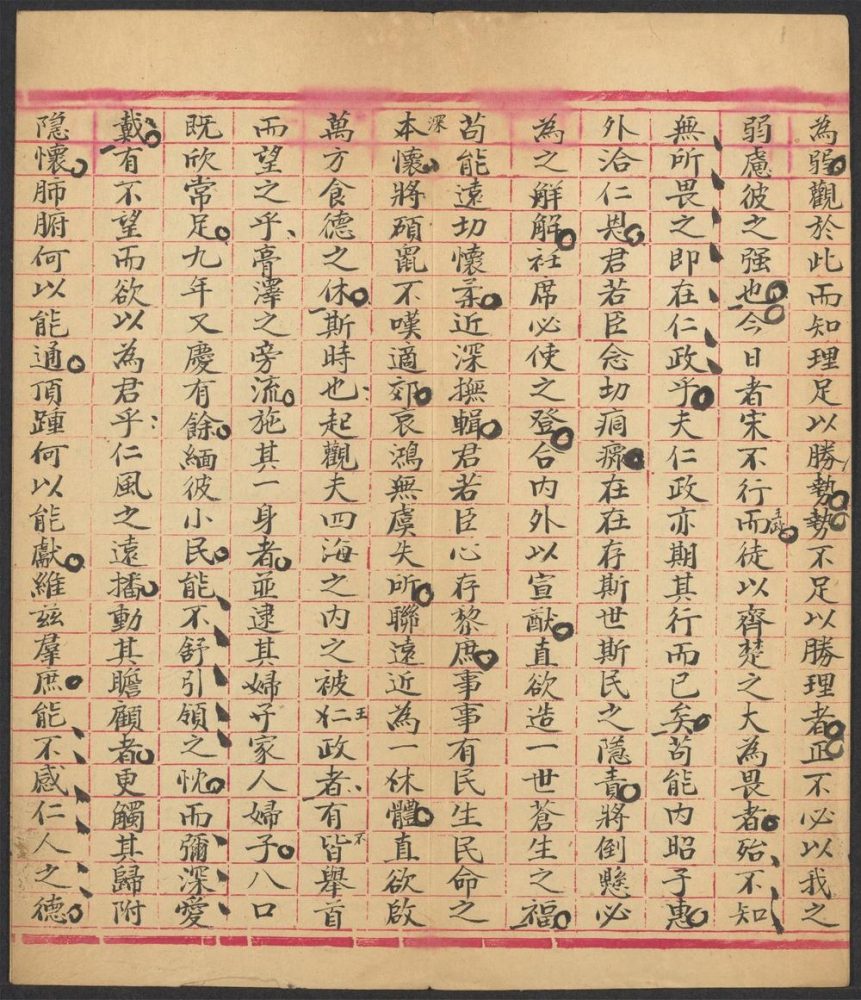 為弱觀於此而知理足以勝勢勢不足以勝理者正不必以我之
弱慮彼之强也今日者宋不行王政而徒以齊楚之大為畏者殆不知
無所畏之即在仁政乎夫仁政亦期其行而已矣苟能内昭子惠
外洽仁恩君若臣念切痌瘝在在存斯世斯民之隱責將倒懸必
為之解解衽席必使之登合内外以宣猷直欲造一世蒼生之福
苟能遠切懷柔近深撫輯君若臣心存黎庶事事有民生民命之
本深懷將碩鼠不嘆適郊哀鴻無虞失所聯遠近為一休體直欲啟
萬方食德之休斯時也起觀夫四海之内之被仁王政者有不皆舉首
而望之乎膏澤之旁流施其一身者並逮其婦子家人婦子八口
既欣常足九年又慶有餘緬彼小民能不舒引領之忱而彌深愛
戴有不望而欲以為君乎仁風之遠播動其瞻顧者更觸其歸附
隐懷肺腑何以能通頂踵何以能獻維兹羣庶能不感仁人之德